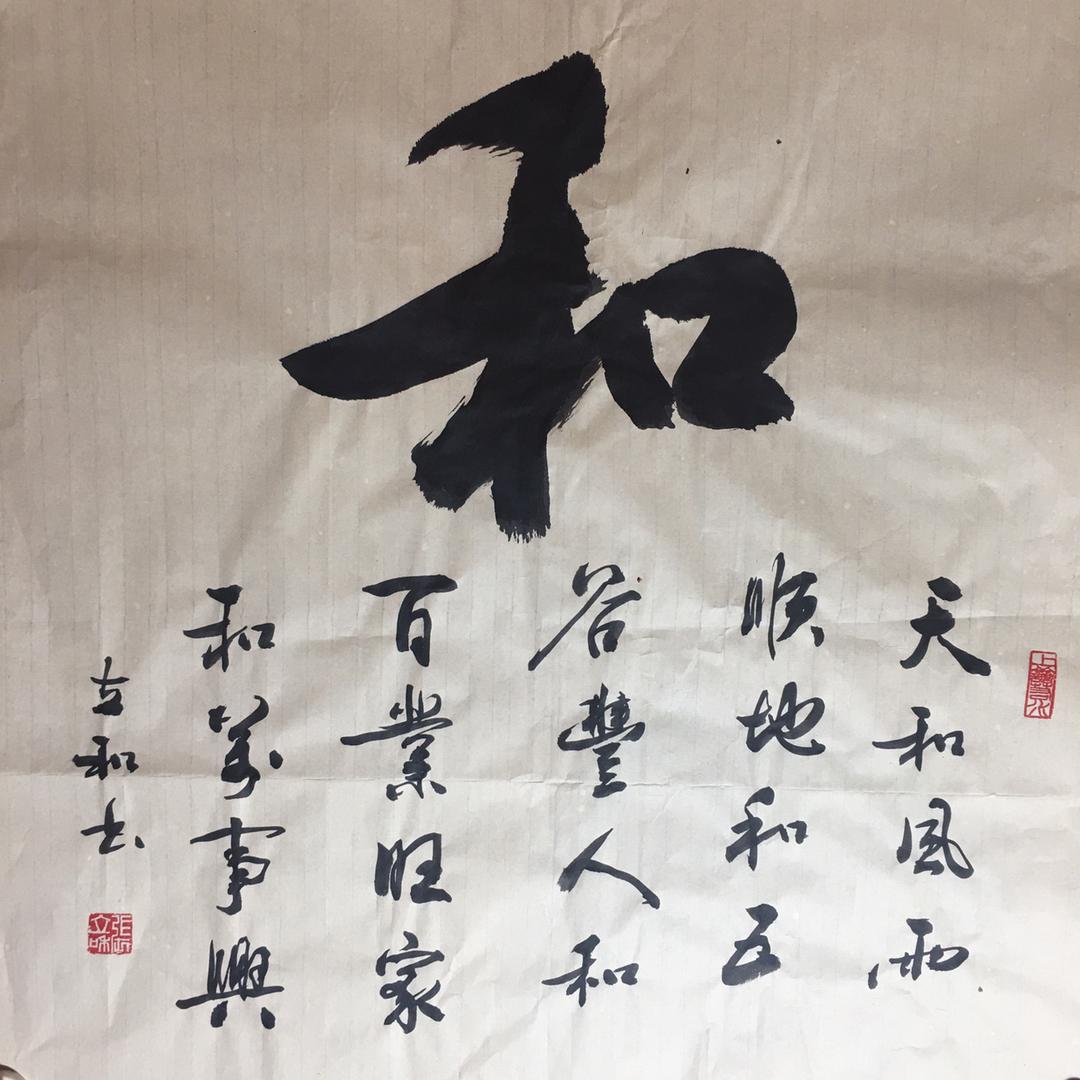 和
天和風雨
順地和五
谷豐人和
百業旺家
和萬事興
立和书
上善若水